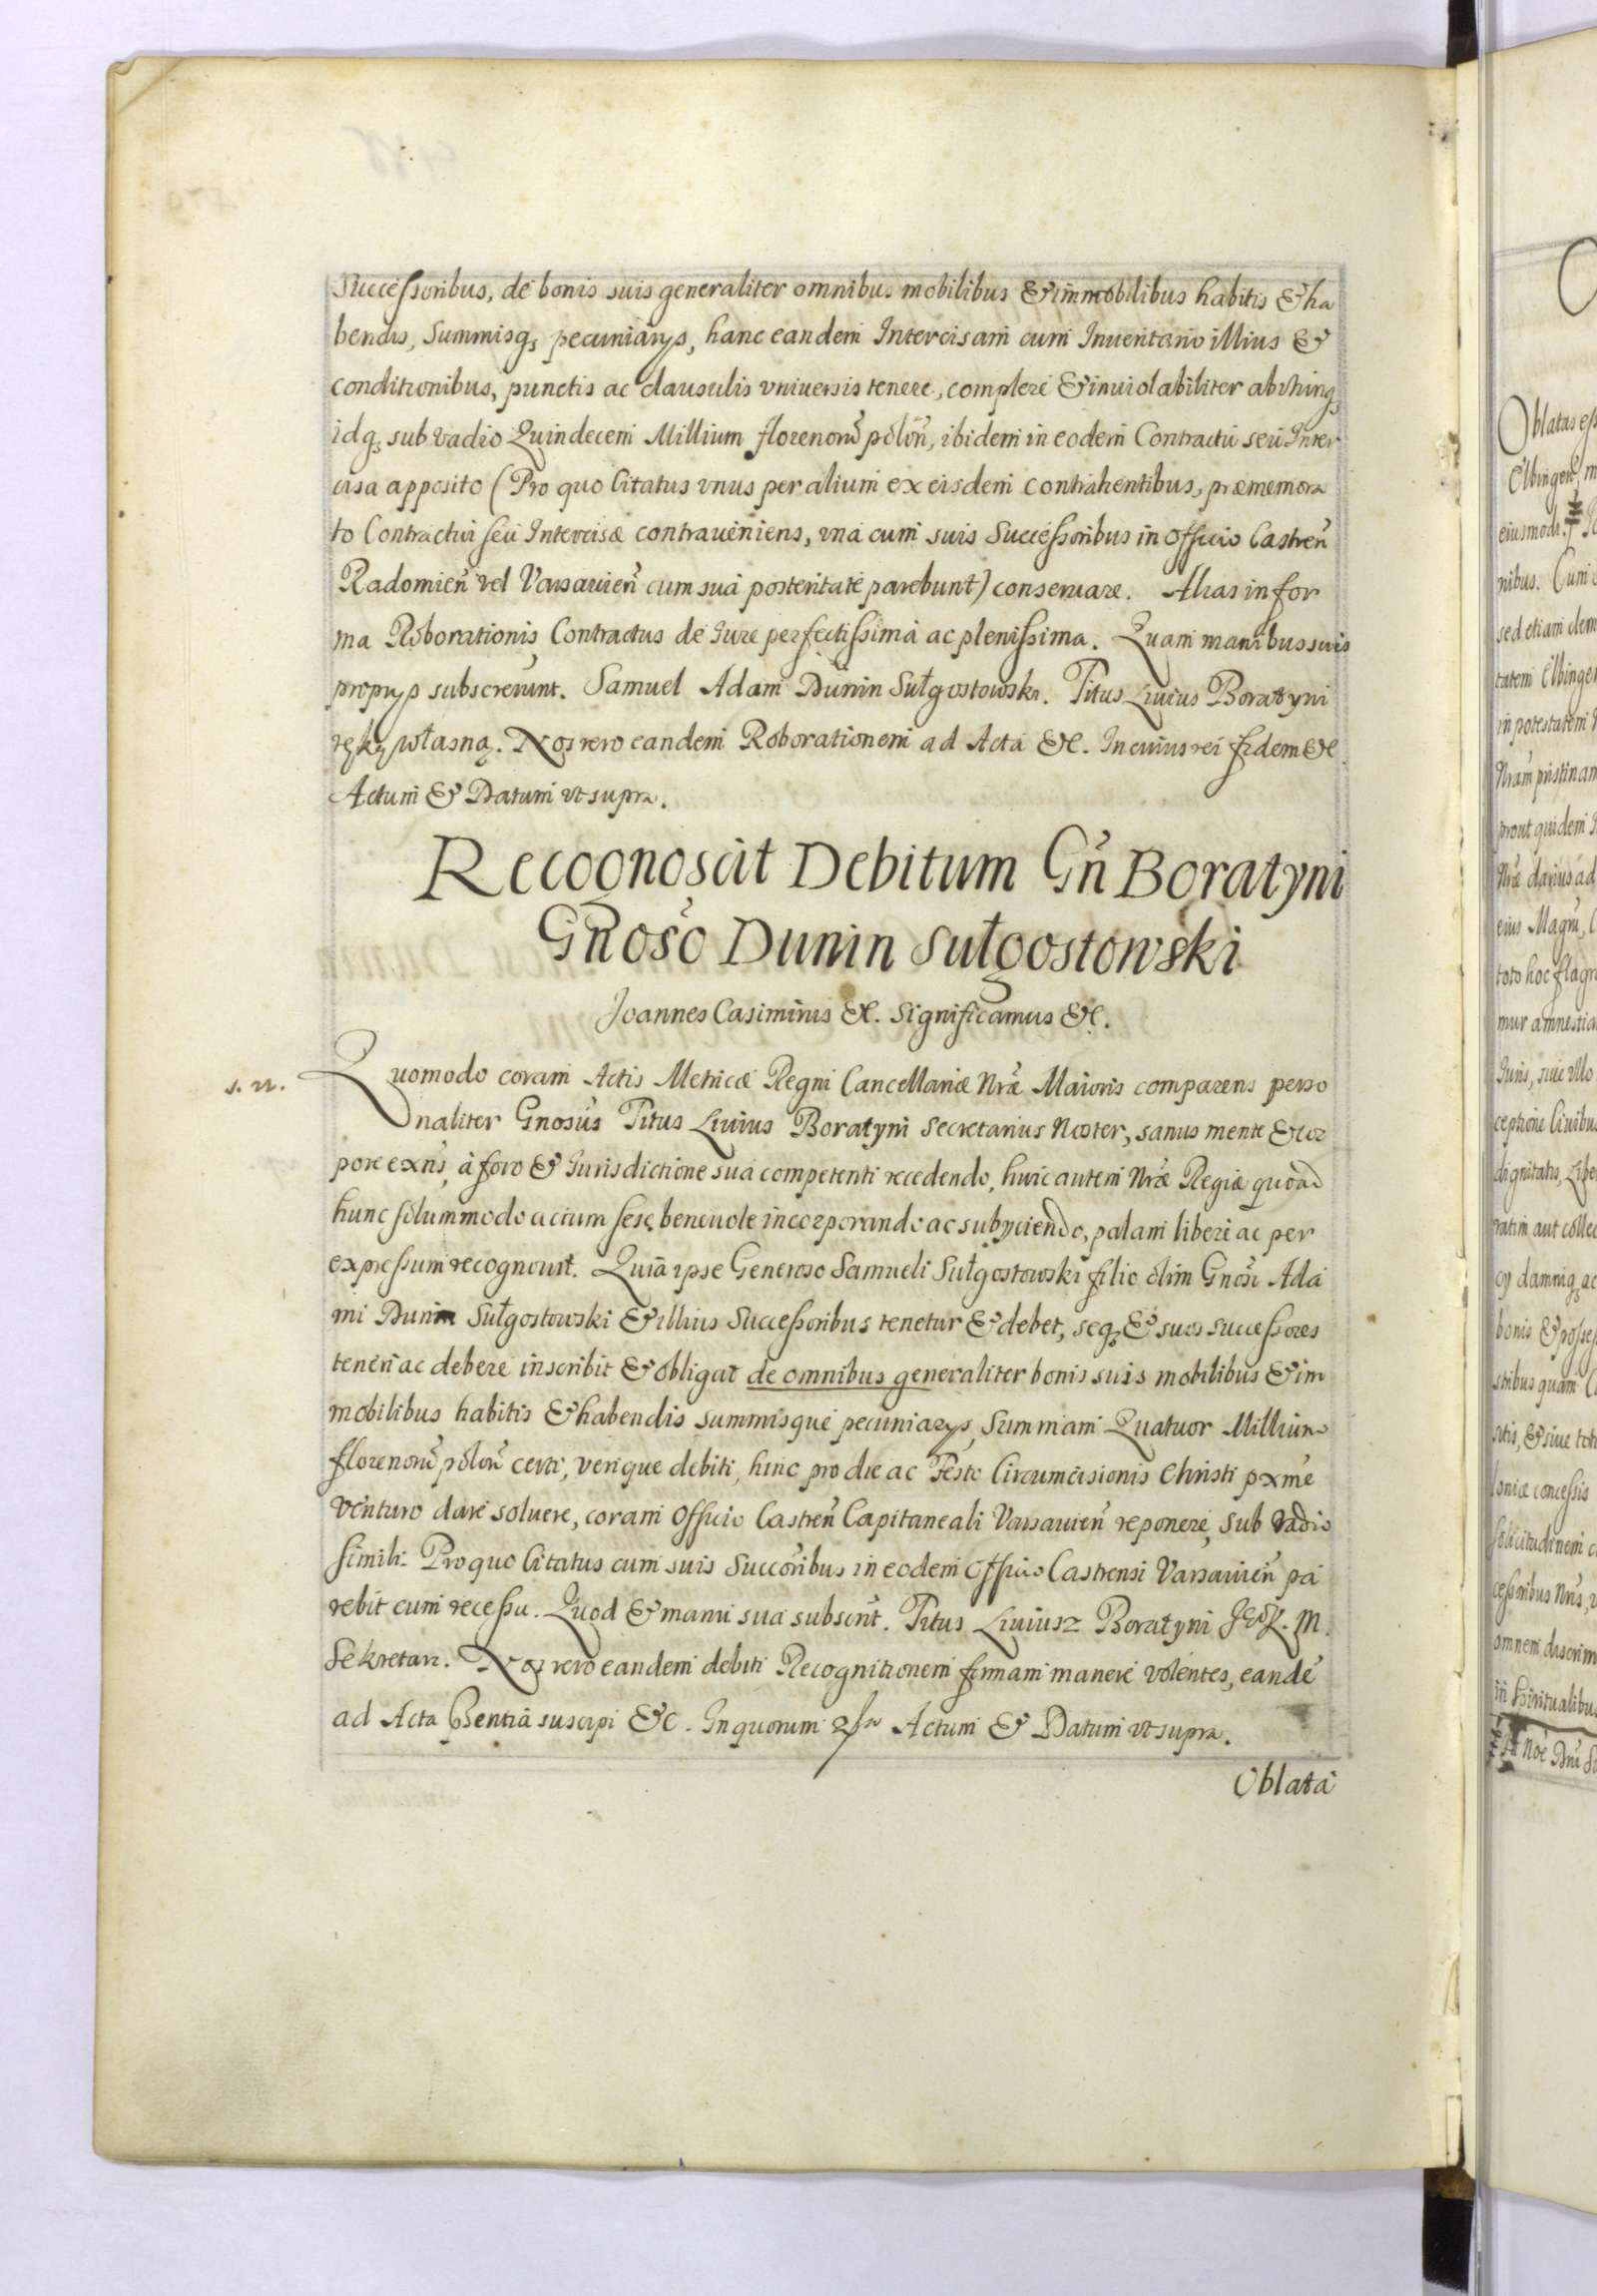 Successoribus, de bonis suis generaliter omnibus mobilibus & immobilibus habitis & ha
bendis, Summisq₃ pecuniarys, hanc eandem Intercisam cum Inuentario illius &
conditionibus, punctis ac clausulis vniuersis tenere, complere & inuiolabiliter ab vtrinq₃
idq₃ sub vadio Quindecem Millium florenorũ polõn, ibidem in eodem Contractu seu Inter
cisa apposito (Pro quo Citatus vnus per alium ex eisdem contrahentibus, præmemora
to Contractui seu Intercisæ contraueniens, vna cum suis Successoribus in Officio Castreñ
Radomieñ vel Varsauieñ cum sua posteritate parebunt) conseruare. Alias in for
ma Roborationis Contractus de Iure perfectissima ac plenissima. Quam manibus suis
proprys subscrerunt. Samuel Adam Dunin Sułgostowski. Titus Liuius Boratyni
ręką własną. Nos vero eandem Roborationem ad Acta &c. In cuius rei fidem &c.
Actum & Datum vt supra.
Recognoscit Debitum Gñ Boratyni
Gñoso Dunin Sułgostowski
Joannes Casimirus &c. Significamus &c.
s. n.
Quomodo coram Actis Metricæ Regni Cancellariæ Nræ Maioris comparens perso
naliter Gnosus Titus Liuius Boratyni Secretarius Noster, sanus mente & cor
pore exñs, à foro & Iurisdictione sua competenti recedendo, huic autem Nræ Regiæ quoad
hunc solummodo actum sese beneuole incorporando ac subyciendo, palam libere ac per
expressum recognouit. Quia ipse Generoso Samueli Sułgostowski filio olim Gnosi Ada
mi Dunin Sułgostowski & illius Successoribus tenetur & debet, seq₃ & suos successores
teneri ac debere inscribit & obligat de omnibus generaliter bonis suis mobilibus & im
mobilibus habitis & habendis summisque pecuniarys, Summam Quatuor Millium
florenorũ polon̄ certi, verique debiti, hinc pro die ac Festo Circumcisionis Christi pxme
venturo dare soluere, coram Officio Castreñ Capitaneali Varsauieñ reponere, sub vadio
simili. Pro quo Citatus cum suis Succoribus in eodem Officio Castrensi Varsauieñ pa
rebit cum recessu. Quod & manu sua subscrit. Titus Liuiusz Boratyni J. K. M.
Sekretarz. Nos vero eandem debiti Recognitionem firmam manere volentes, eandẽ
ad Acta pñentia suscipi &c. In quorum Actum & Datum vt supra.
Oblata